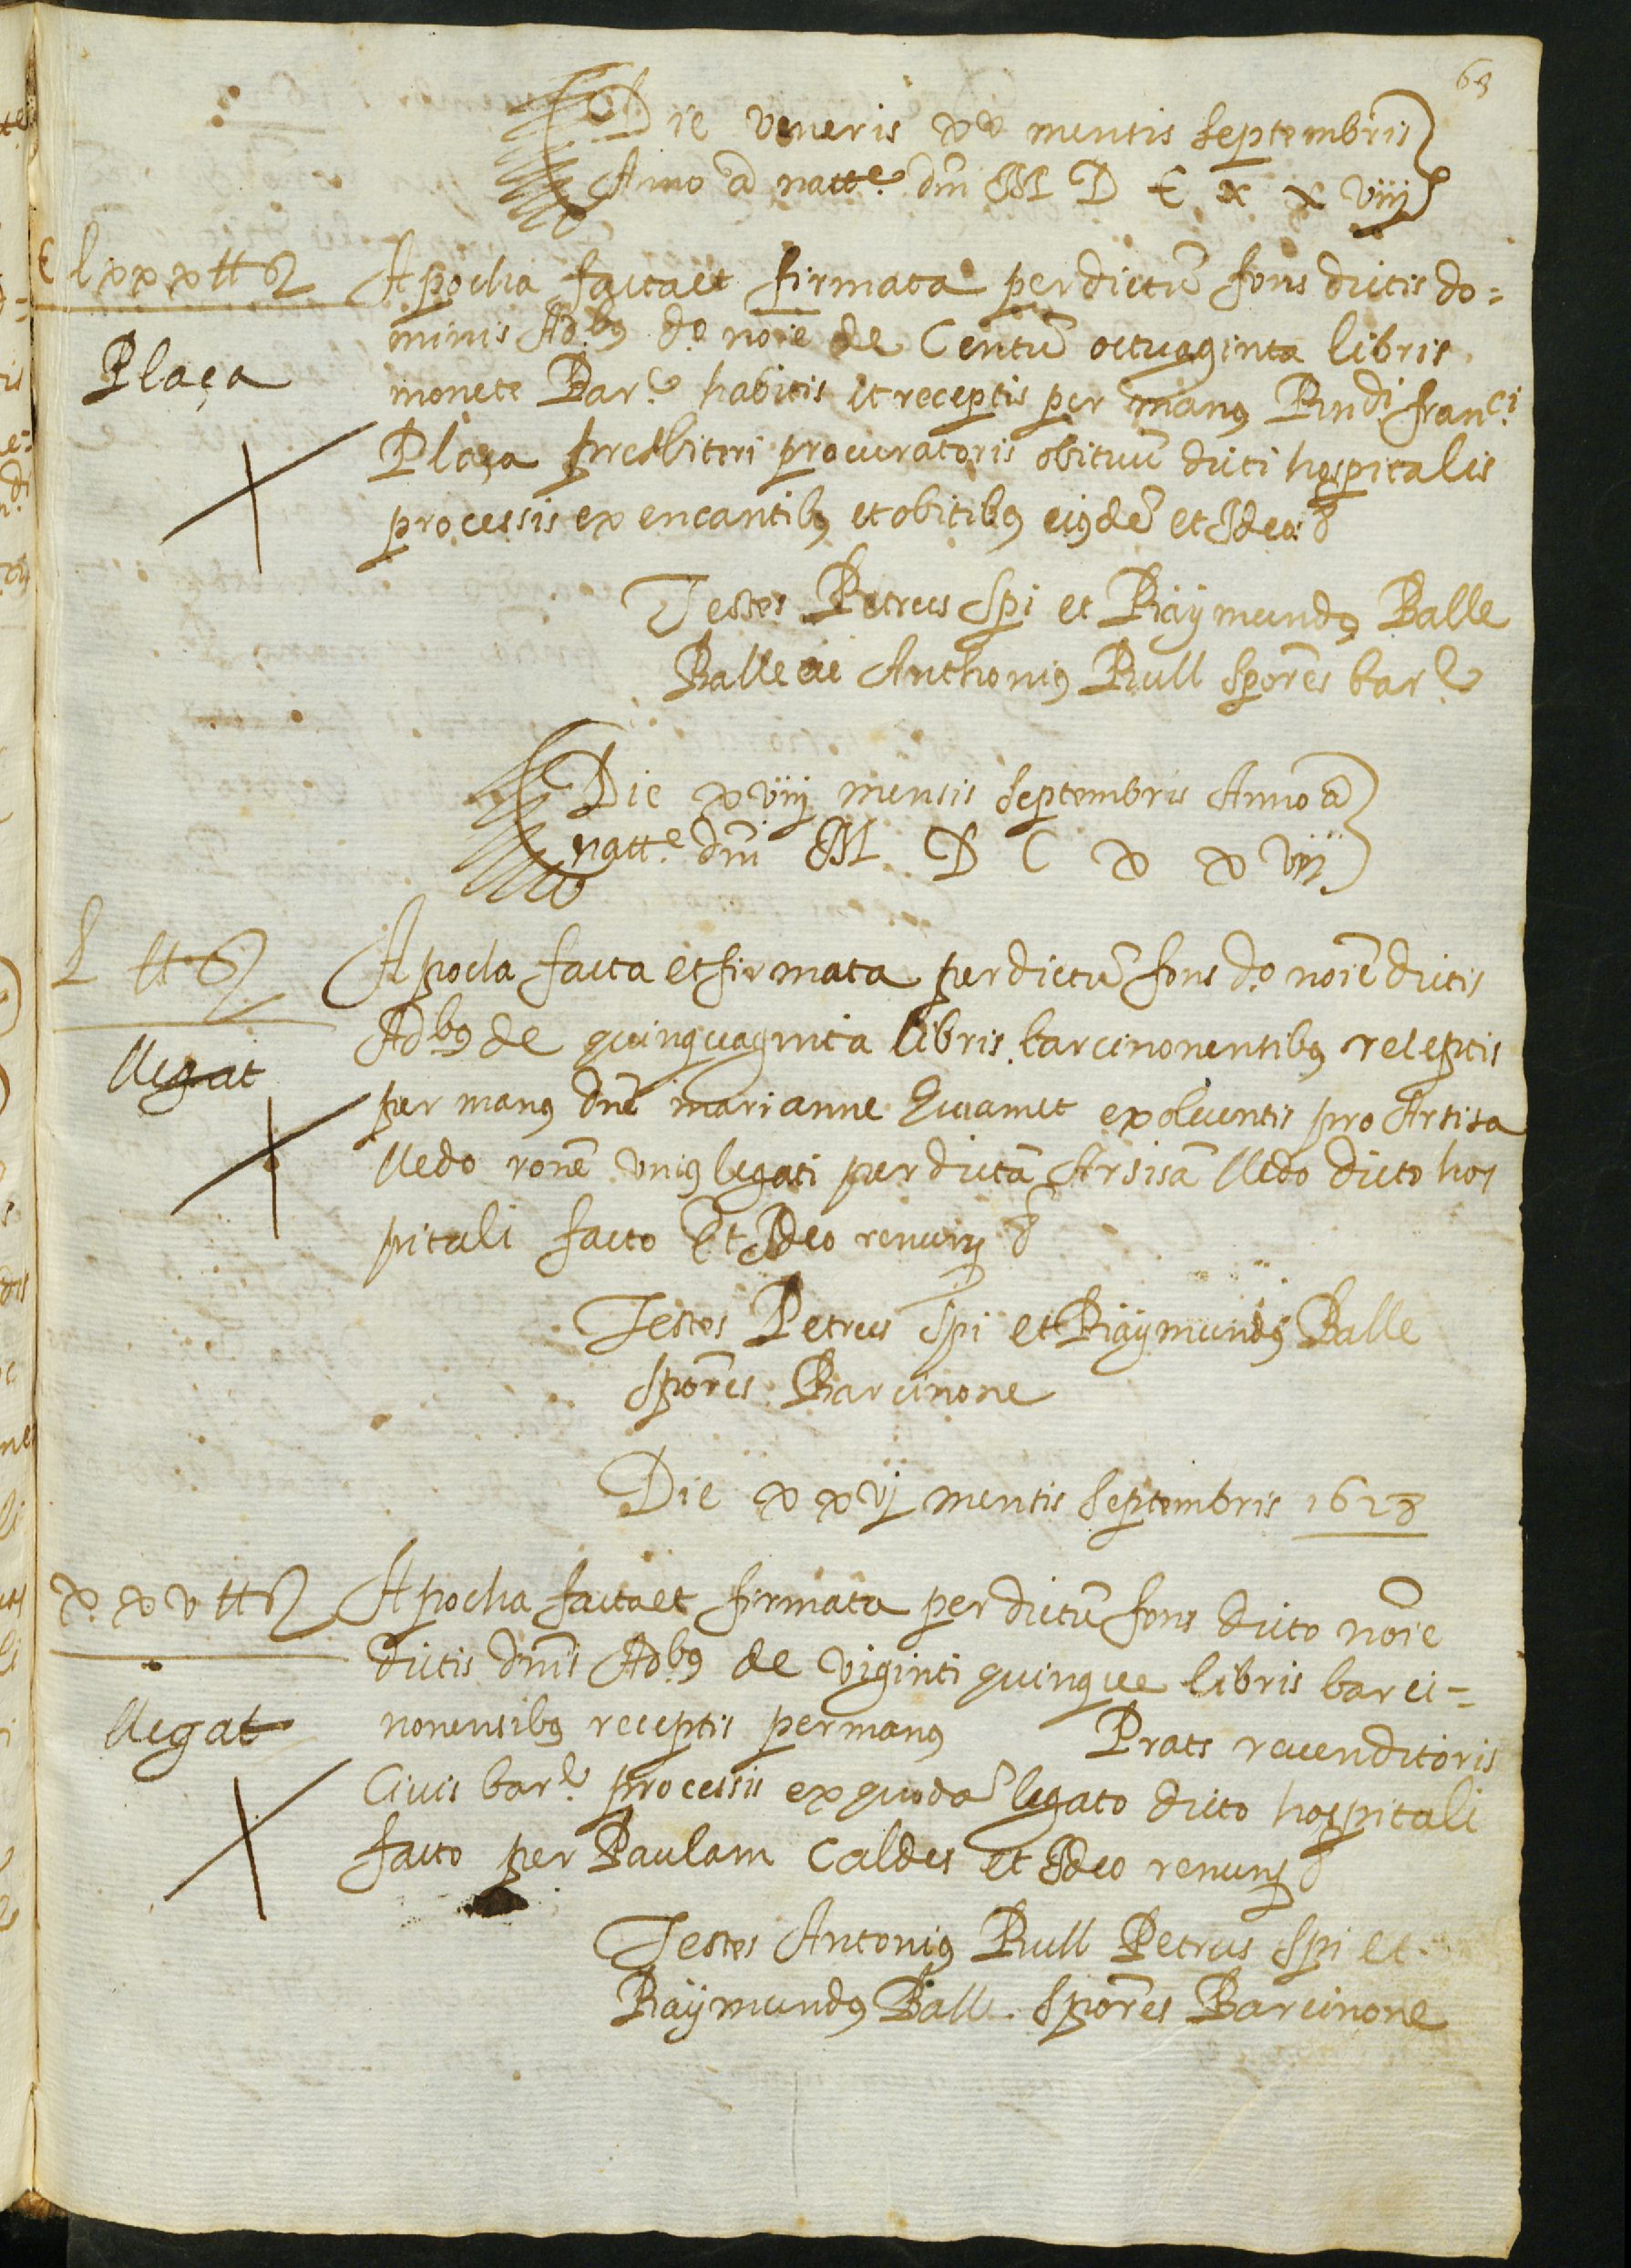 63
Die veneris xv mensis septembris
Anno a natte. dni M D C x x viij
C lxxx ll s
Apocha facta et firmata per dictu fons dictis do=
minis Adbus. do. noie de Centu octuaginta libris
Plaça
monete Bar.e habitis et receptis per manus Rndi. franci.
Plaça presbiteri procuratoris obituu dicti hospitalis
processis ex encantibus et obitibus eiusde et Ideo &
Testes Petrus Spi et Raÿmundus Balle
Balle ac Anthonius Rull Spores bar.e
Die xviij mensis septembris Anno a
natte. dni M D C x x viij.
L ll s
Apocha facta et firmata per dictu fons do. noie dictis
Adbus de quinquaginta libris barcinonensibus receptis
llegat
per manus dne marianne exoluentis pro Arsisa
lledo rone unius legati per dicta Arsisa lledo dicto hos
pitali facto Et Ideo renun &
Testes Petrus Spi et Raÿmundus Balle
Spores Barcinone
Die xxvj mensis septembris 1628
x xv ll s
Apocha facta et firmata per dictu fons dicto noie
dictis dnis Adbus de viginti quinque libris barci=
llegat
nonensibus receptis per manus Prats reuenditoris
Ciuis bar.e processis ex quoda legato dicto hospitali
facto per Paulam Caldes et Ideo renun &
Testes Antonius Rull Petrus Spi et
Raÿmundus Balle Spores Barcinone